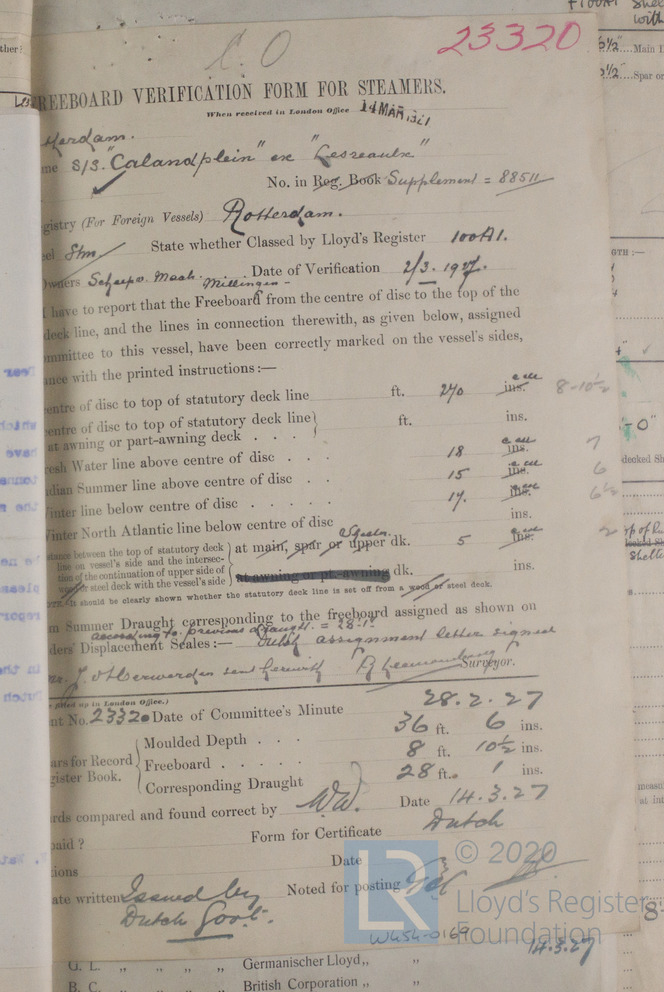 C.O
23320
FREEBOARD VERIFICATION FORM FOR STEAMERS.
When received in London Office 14 MAR 1927
terdam.
me S/S. "Calandplein" ex
No. in Reg. Book Supplement = 88511
gistry (For Foreign Vessels) Rotterdam.
eel Stm State whether Classed by Lloyd's Register 100A1.
Owners Scheeps. Maats. Millingen Date of Verification 2/3. 1927.
I have to report that the Freeboard from the centre of disc to the top of the
deck line, and the lines in connection therewith, as given below, assigned
ommittee to this vessel, have been correctly marked on the vessel's sides,
ance with the printed instructions:—
entre of disc to top of statutory deck line ft. 270 ins. c m 8-10½
entre of disc to top of statutory deck line
at awning or part-awning deck . . . ft. ins.
resh Water line above centre of disc . . . 18 ins. c m 7
ndian Summer line above centre of disc . . 15 ins. c m 6
Winter line below centre of disc . . . . . 17. ins. c m 6½
Winter North Atlantic line below centre of disc ins.
stance between the top of statutory deck
line on vessel's side and the intersec-
tion of the continuation of upper side of
wood or steel deck with the vessel's side
at main, spar or upper dk. Shelter. 5 ins. c m 2
at awning or pt.-awning dk. ins.
NOTE. It should be clearly shown whether the statutory deck line is set off from a wood or steel deck.
m Summer Draught corresponding to the freeboard assigned as shown on
according to previous draught. = 28'.1"
ders' Displacement Scales:— Dutch assignment letter signed
sent herewith Surveyor.
e filled up in London Office.)
28.2.27
nt No. 23320 Date of Committee's Minute
ars for Record
gister Book.
Moulded Depth . . . 36 ft. 6 ins.
Freeboard . . . . . 8 ft. 10½ ins.
Corresponding Draught 28 ft. 1 ins.
rds compared and found correct by WW. Date 14.3.27
paid ? Form for Certificate Dutch
tions Date
ate written Issued by Dutch Govt. Noted for posting
© 2020
LR
Lloyd's Register
Foundation
W454-0169
14.3.27
G. L. „ „ „ Germanischer Lloyd „ „
B. C. „ „ „ British Corporation „ „